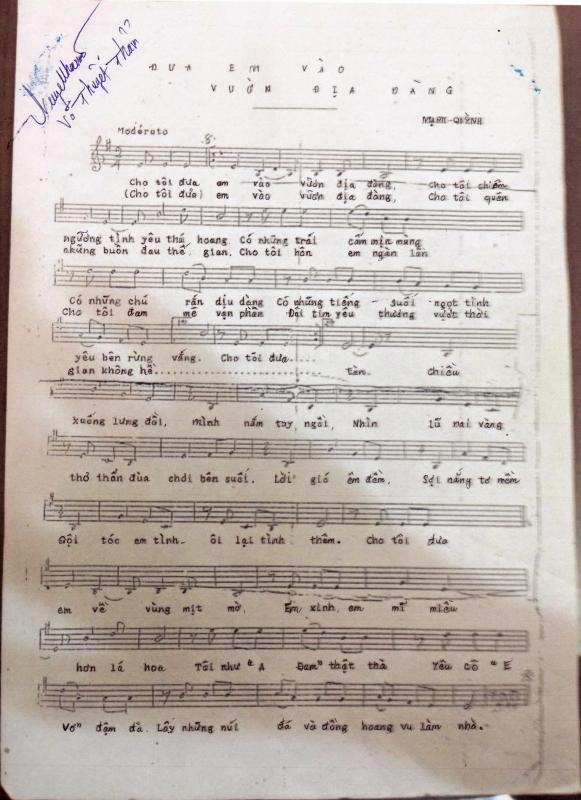 Võ Thuyết Thám ??
ĐƯA EM VÀO
VƯỜN ĐỊA ĐÀNG
MẠNH-QUỲNH
Moderato
Cho tôi đưa em vào vườn địa đàng, cho tôi chiêm
(Cho tôi đưa) em vào vườn địa đàng, Cho tôi quên
ngưỡng tình yêu thú hoang. Có những trái cấm mịn màng
những buồn đau thế gian. Cho tôi hôn em ngàn lần
Có những chú rắn dịu dàng Có những tiếng suối ngọt tình
Cho tôi đam mê vạn phần Đại tim yêu thương vượt thời
yêu bên rừng vắng. Cho tôi đưa....
gian không hề.............................. tàn. Chiều
xuống lưng đồi, mình nắm tay ngồi, Nhìn lũ nai vàng
thơ thẩn đùa chơi bên suối. Lời gió êm đềm, Sợi nắng tơ mềm
Gội tóc em tình- ôi lại tình thêm. Cho tôi đưa
em về vùng mịt mờ, Em xinh, em mĩ miều
hơn lá hoa Tôi như "A Đam" thật thà Yêu cô "E
Vơ" đậm đà. Lấy những núi đá và đồng hoang vu làm nhà.-